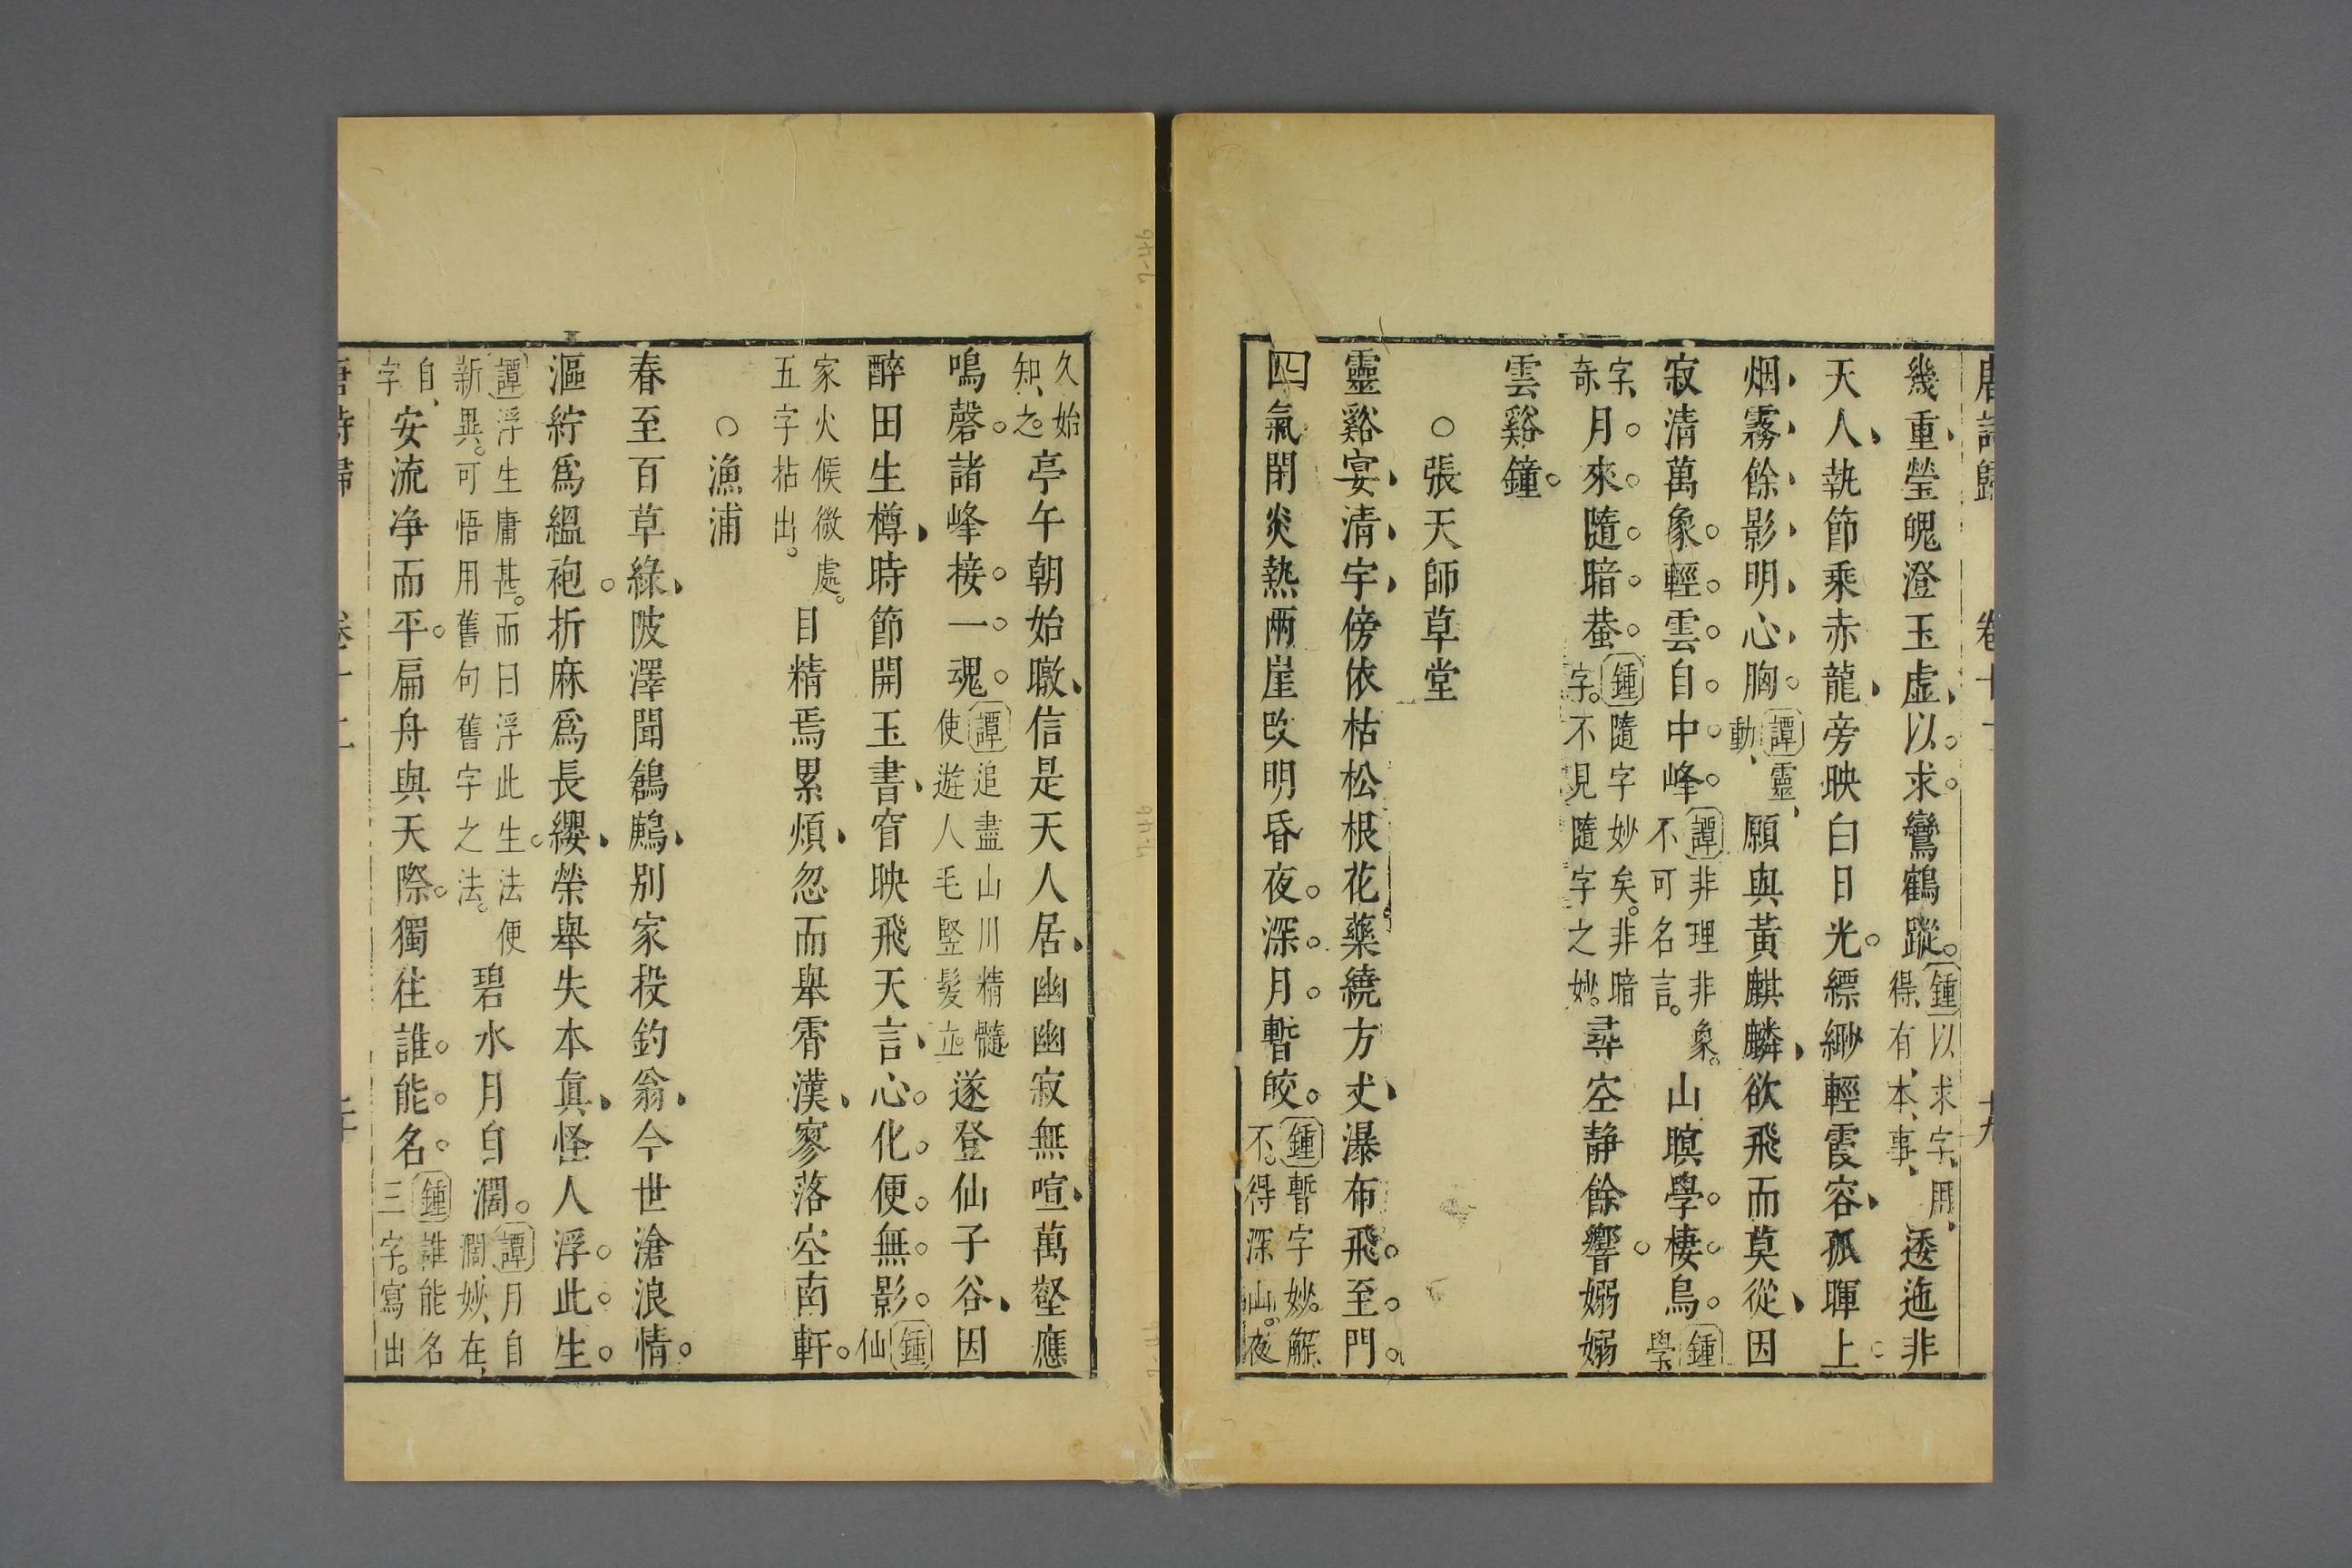 唐詩歸 卷十二 十九
幾重瑩魄澄玉虛以求鸞鶴蹤。鍾以求字用得有本事逶迤非
天人執節乘赤龍旁映白日光。縹緲輕霞容孤暉上
烟霧餘影明心胸譚靈動願與黃麒麟欲飛而莫從因
寂清萬象輕雲自中峰譚非理非象。不可名言。山暝學棲鳥鍾學
字奇月來隨暗蛩鍾隨字妙矣。非暗字。不見隨字之妙。尋空静餘響。嫋嫋
雲谿鐘。
○張天師草堂
靈谿宴清宇傍依枯松根花藥繞方丈瀑布飛至門。
四氣閉炎熱兩崖改明昏夜深月暫皎。鍾暫字妙。解不。得深山。夜
久始知之。亭午朝始暾信是天人居幽幽寂無喧萬壑應
鳴磬。諸峰接一魂譚追盡山川精髓使遊人毛竪髮立。遂登仙子谷因
醉田生樽時節開玉書窅映飛天言心化便無影鍾仙
家火候微處。五字拈出。目精焉累煩忽而舉霄漢寥落空南軒。
○漁浦
春至百草綠陂澤聞鶬鶊別家投釣翁今世滄浪情。
漚紵爲縕袍。折麻爲長纓榮舉失本真怪人浮此生。
譚浮生庸甚。而曰浮此生。法便新異。可悟用舊句舊字之法。碧水月自濶。譚月自濶妙在
自字安流净而平。扁舟與天際。獨往誰能名。鍾誰能名三字。寫出
唐詩歸 卷十二 二十